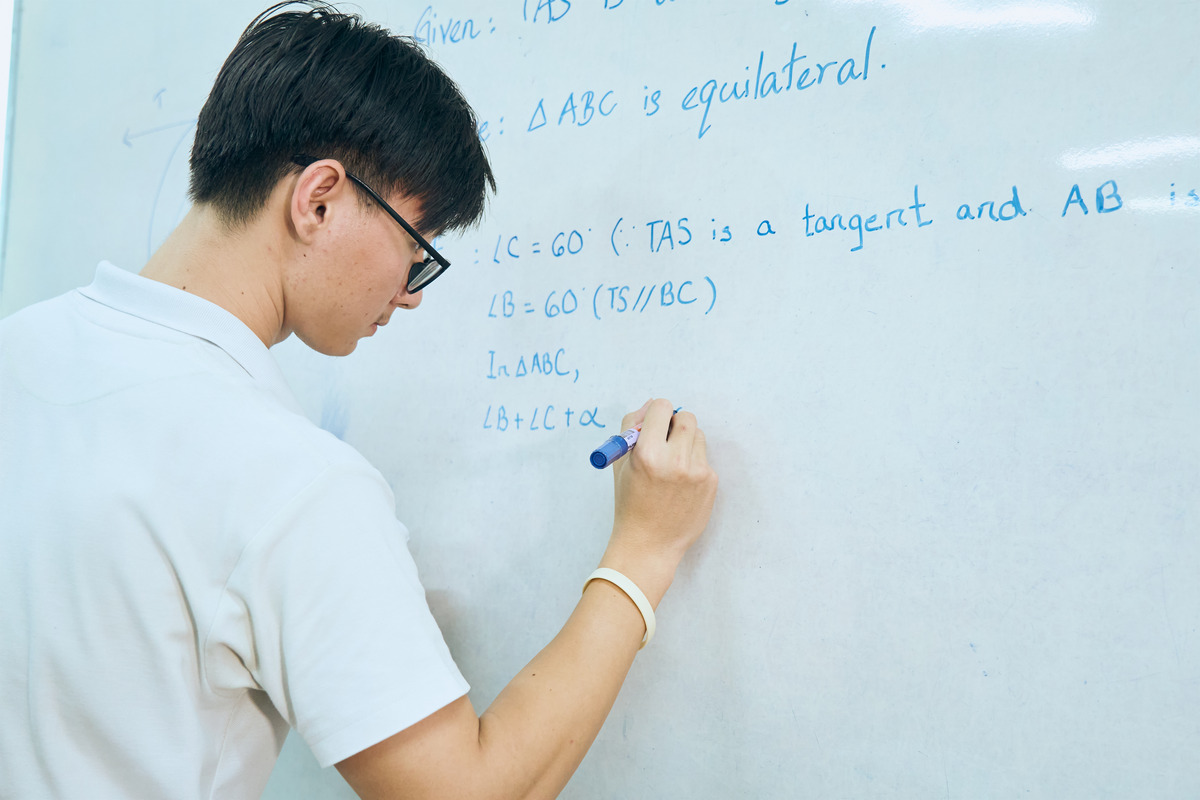 Given: TAS is
: Δ ABC is equilateral.
: ∠C = 60° (∵ TAS is a tangent and AB is
∠B = 60° (TS//BC)
In Δ ABC,
∠B + ∠C + α